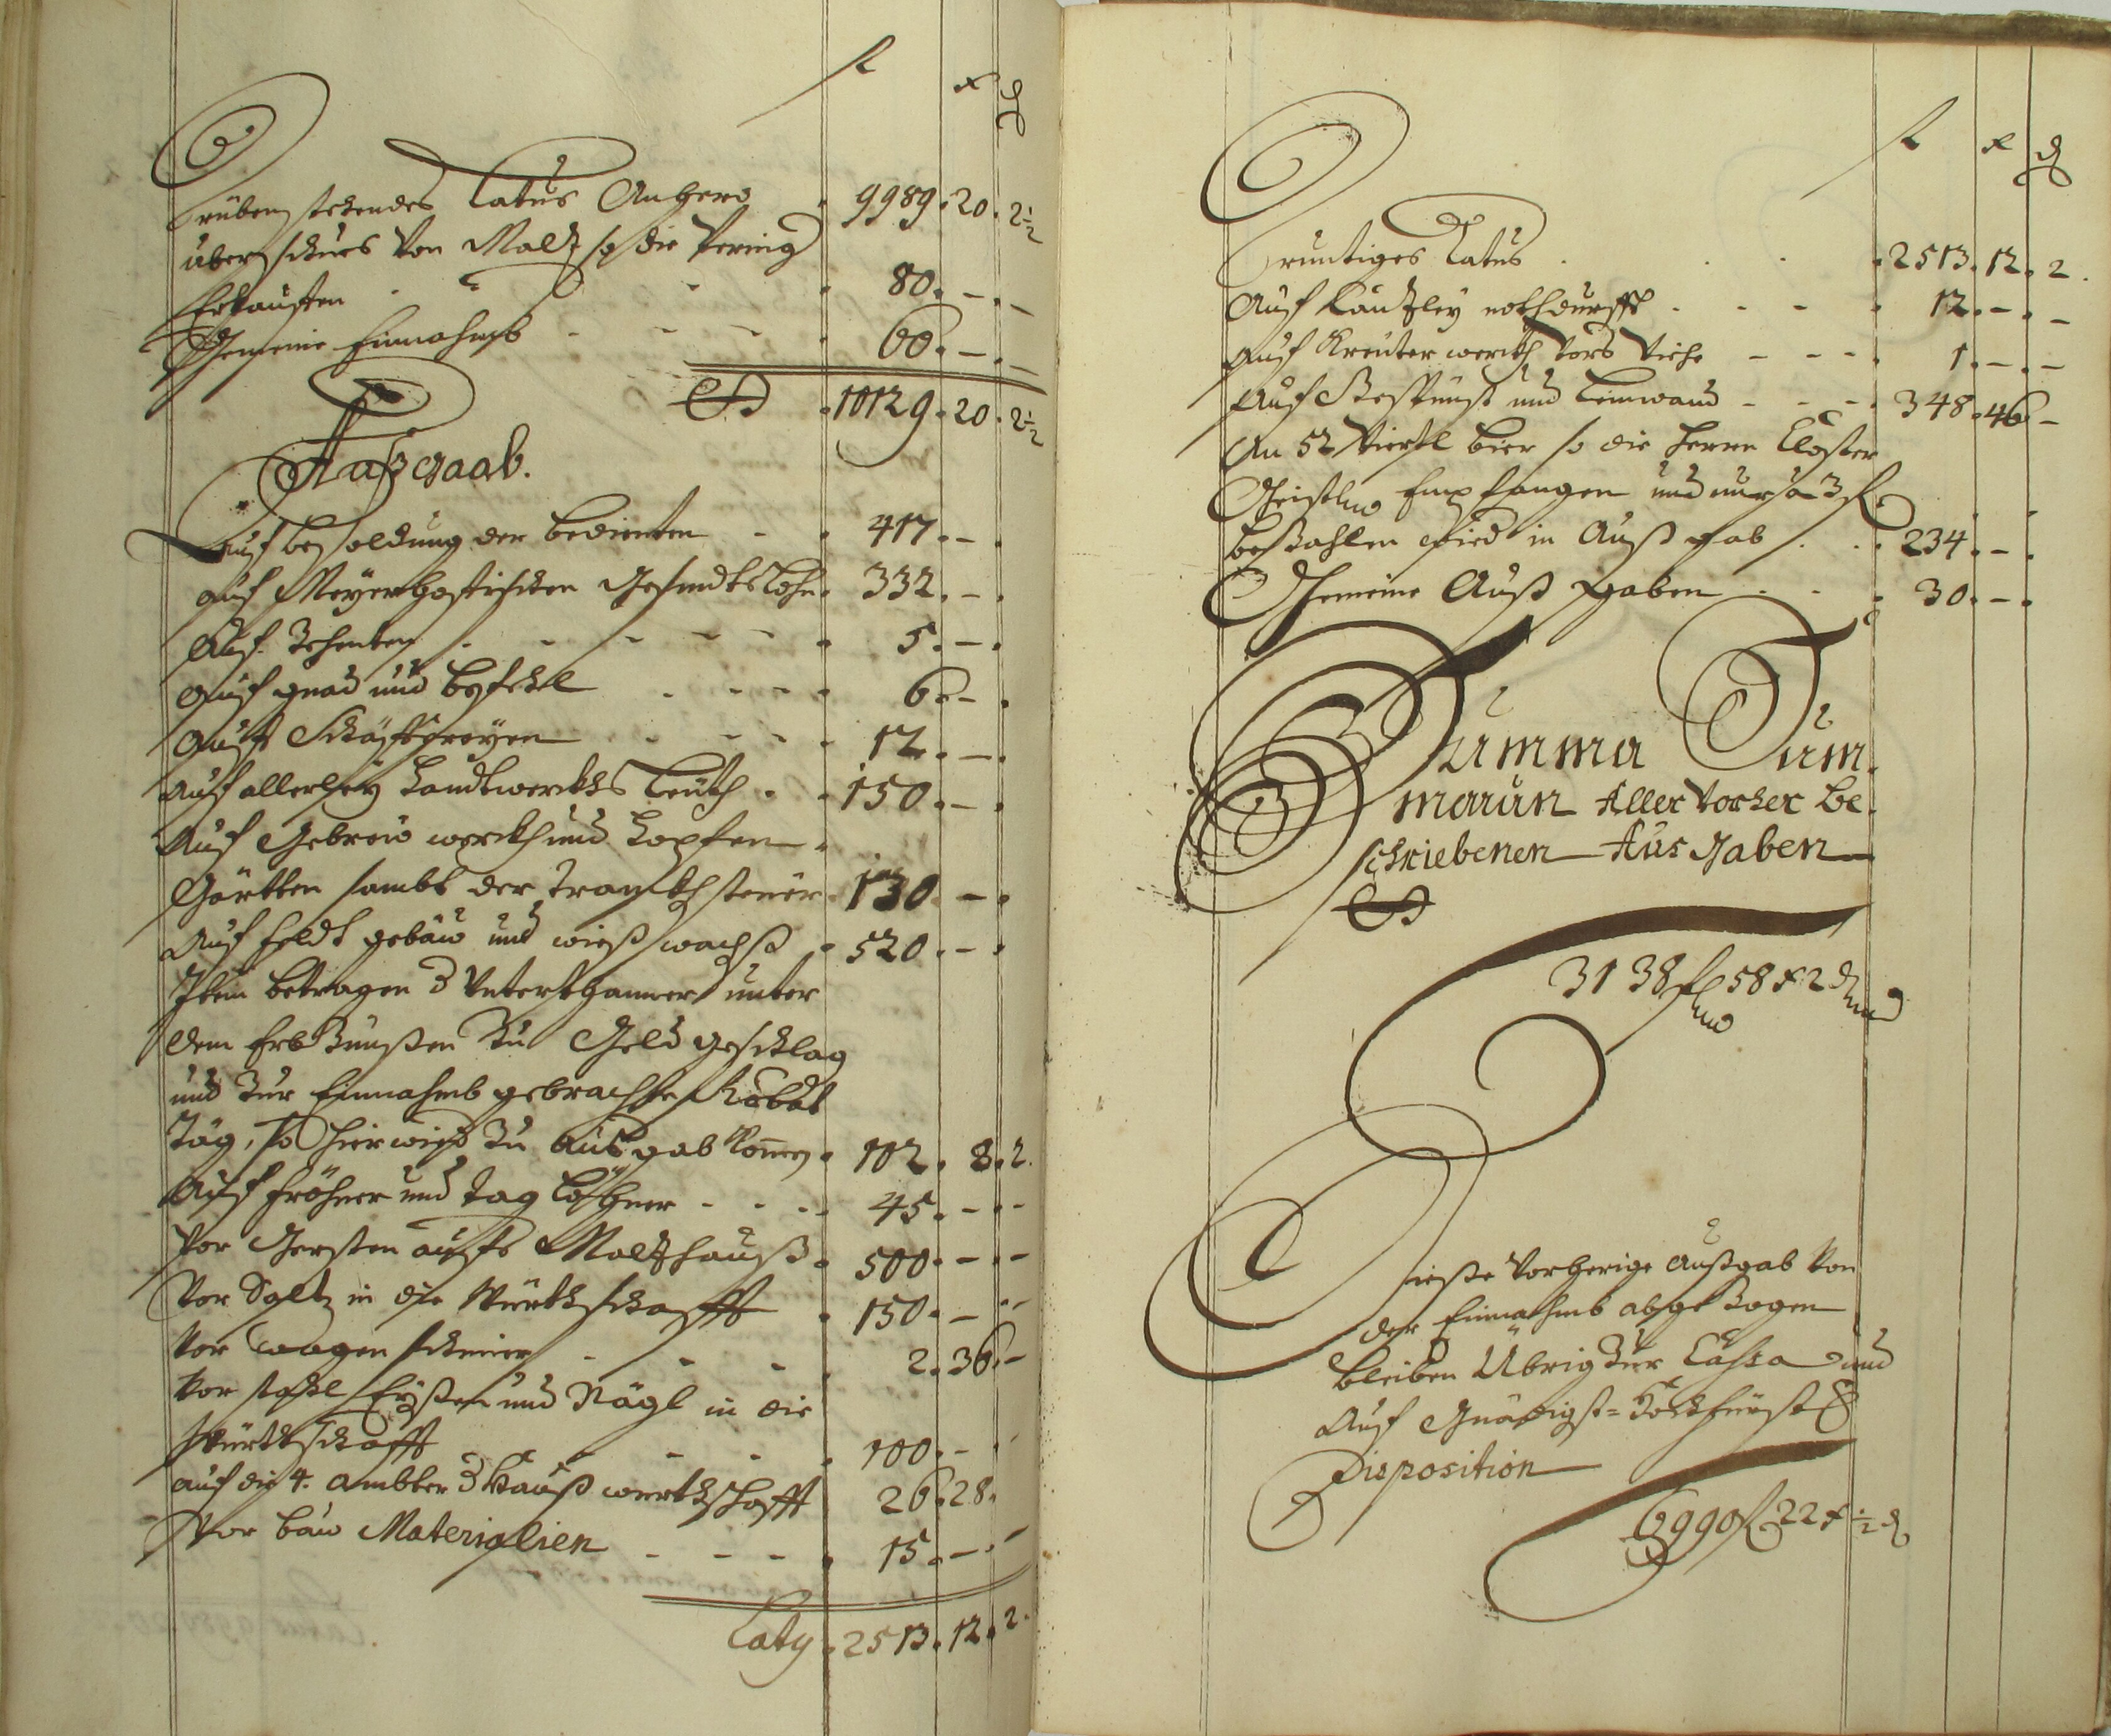 fl x ₰
Drüben stehendes Latus Anhero 9989. 20. 2½
überschues von Maltz so die
Erkauften 80. – –
Gemeine Einnahmb 60. – –
10129. 20. 2½
Außgaab.
Auf besoldung der bedienten 417. –
auf Meyerhofischen Gesindts Lohn 332. –
Auf Zehenten 5. –
auf gnad und befehl 6. –
Auff Schäffereyen 12. –
Auf allerley Handtwerckhs Leüth 150. –
Auf Gebreu werckh und Hopfen
Gärtten sambt der Tranckhsteüer 130. –
Auf Feldt gebäw und wießwachß 520. –
Item betragen 3 Unterthanner unter
dem Erb Zünßen zu Geld geschlag
und zur Einnahmb gebrachte Robot
Täg, so hierwied zu Ausgab komen 102. 8. 2.
Auf Fröhner und Tag Löhner 45. – –
Vor Gersten auffs Maltzhauß 500. – –
Vor Saltz in die Würthschafft 150. –
Vor wagen schmier 2. 36. –
Vor stahl Eyßen und Nägl in die
Würthschafft 100. –
auf die 4. ambter 3 Hauß würthschafft 26. 28.
Vor bau Materialien 15. – –
Laty 2513. 12. 2.
fl x ₰
Druntiges Latus 2513. 12. 2.
Auf Cantzley nothdurfft 12. – –
Auf Kreüter werckh vors Viehe 1. – –
Auf Gespunst und Leinwand 348. 46 –
An 52 Viertl bier so die Herrn Closter
Geistl. Empfangen und nur à 3 fl
bezahlen wird in Außgab 234. –
Gemeine Außgaben 30. –
Summa Sum
marum Aller vorher be
schriebenen Ausgaben
3138 fl 58 x 2 ₰
Dieße vorherige Außgab von
der Einnahmb abgezogen
bleiben Übrig zur Cassa und
Auf Gnädigst-Hochfürstl
Disposition
6990 fl 22 x ½ ₰